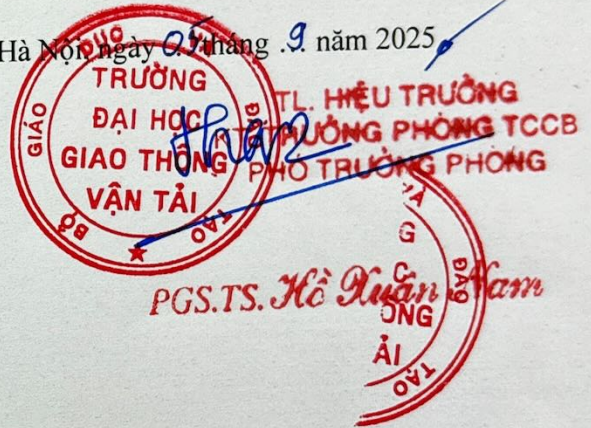 Hà Nội, ngày 05 tháng .9. năm 2025
BỘ GIÁO DỤC VÀ ĐÀO TẠO
TRƯỜNG
ĐẠI HỌC
GIAO THÔNG
VẬN TẢI
TL. HIỆU TRƯỞNG
KT. TRƯỞNG PHÒNG TCCB
PHÓ TRƯỞNG PHÒNG
VÀ
ĐÀO
TẠO
G
C
ÔNG
ẢI
PGS.TS. Hồ Xuân Nam